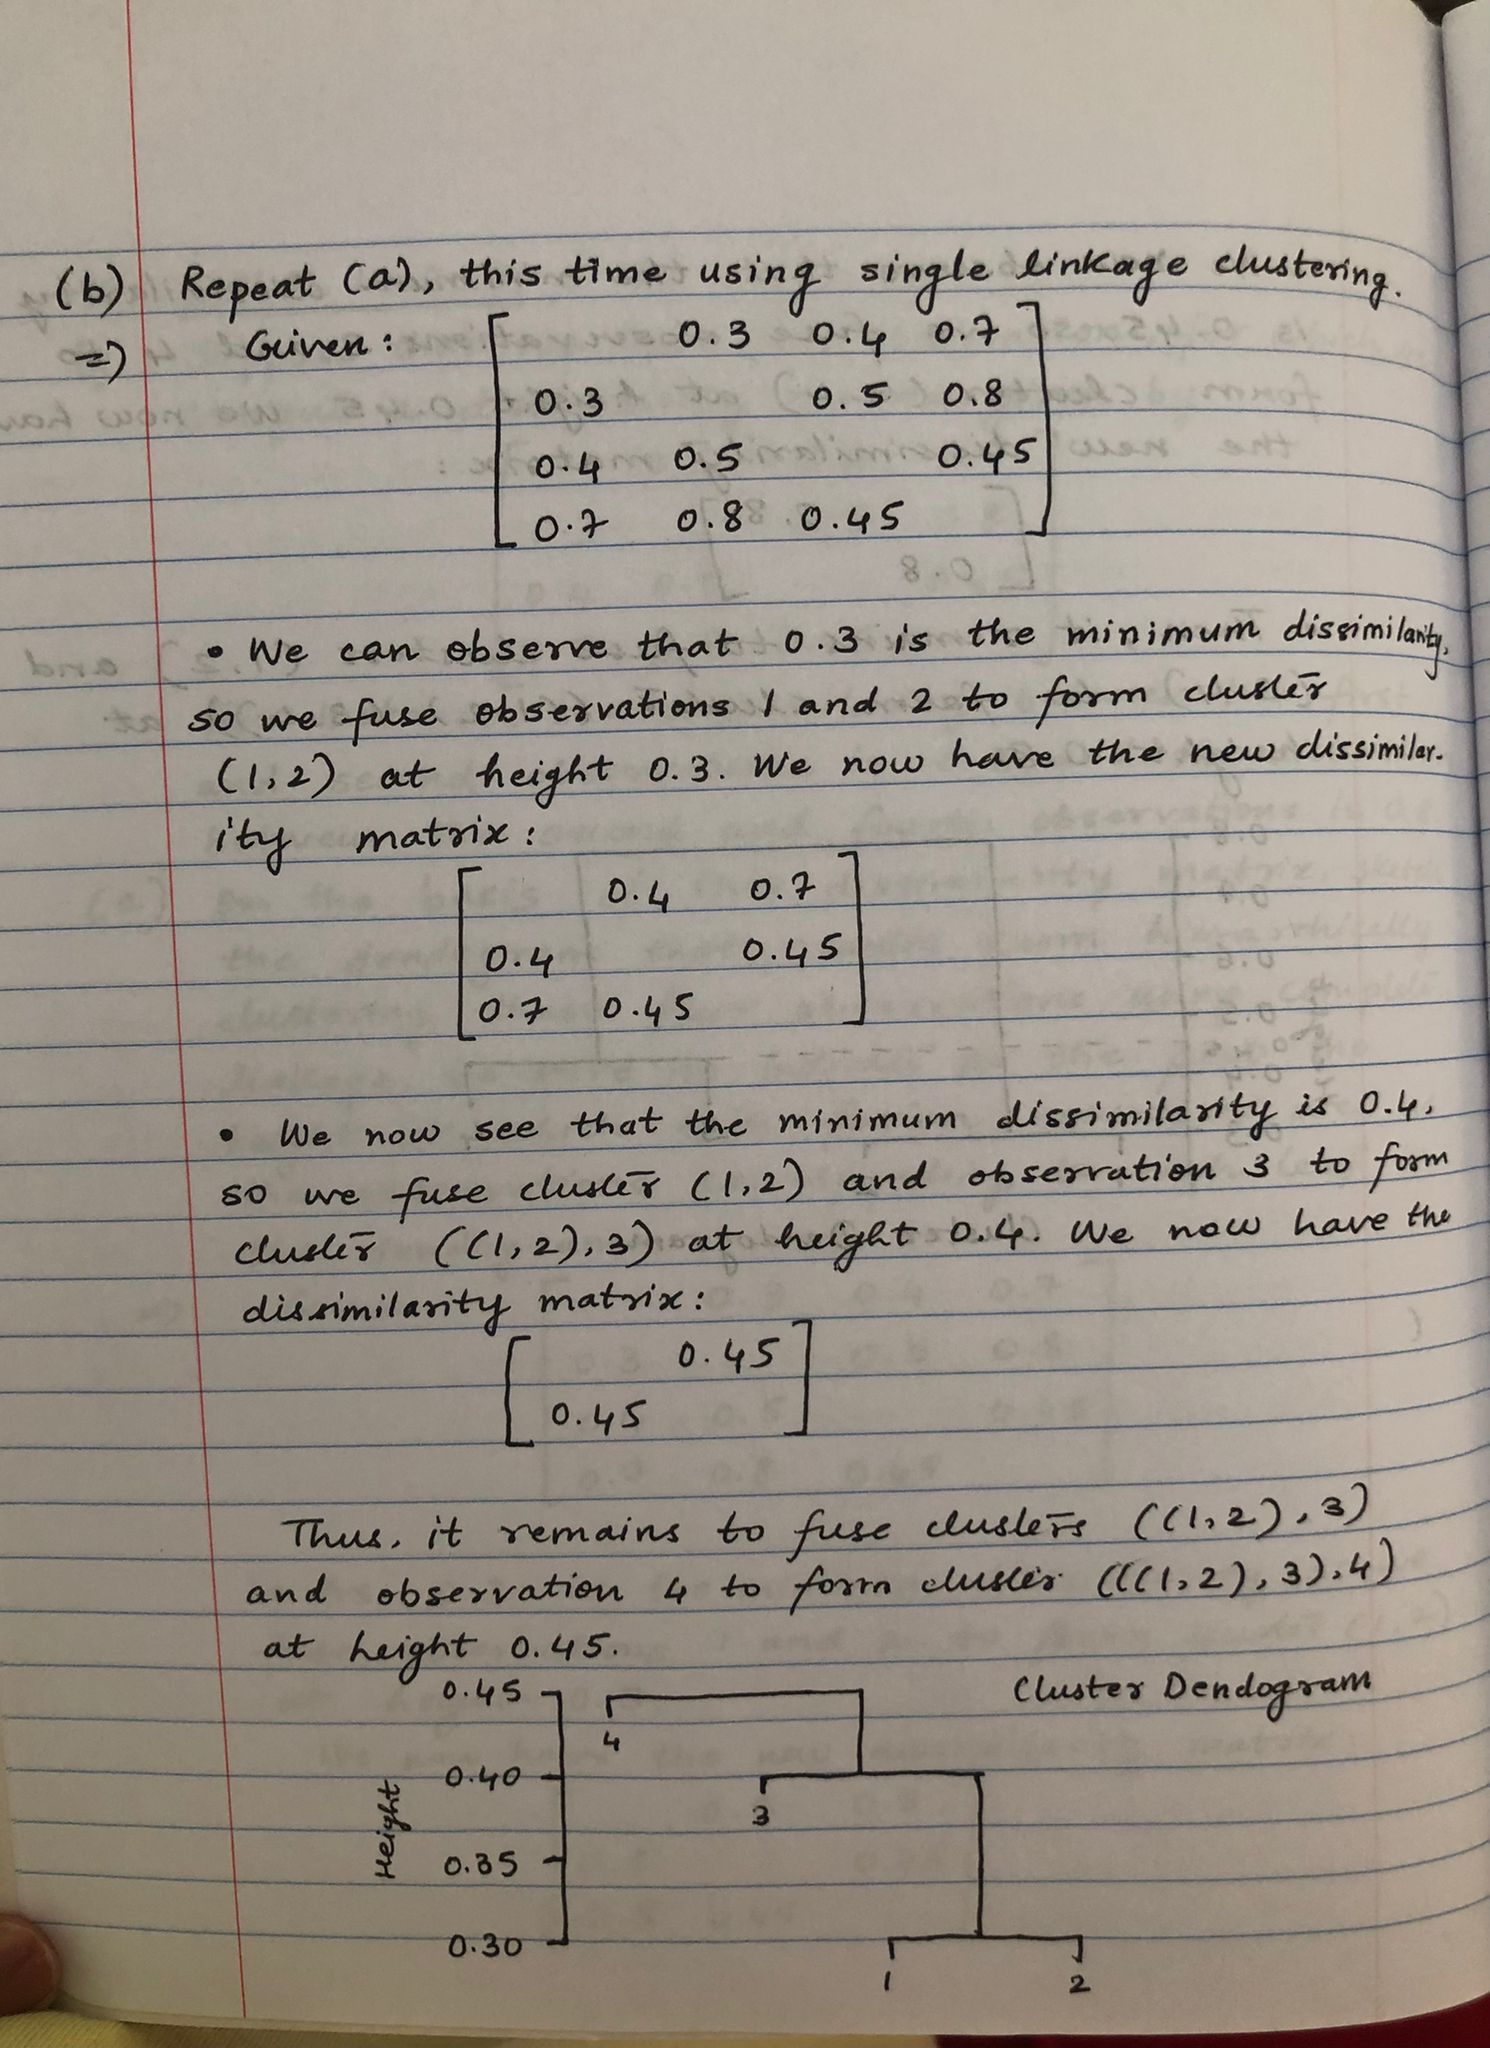 (b) Repeat (a), this time using single linkage clustering.
=) Given : [ 0.3 0.4 0.7
0.3 0.5 0.8
0.4 0.5 0.45
0.7 0.8 0.45 ]
• We can observe that 0.3 is the minimum dissimilarity,
so we fuse observations 1 and 2 to form cluster
(1,2) at height 0.3. We now have the new dissimilar-
ity matrix :
[ 0.4 0.7
0.4 0.45
0.7 0.45 ]
• We now see that the minimum dissimilarity is 0.4,
so we fuse cluster (1,2) and observation 3 to form
cluster ((1,2),3) at height 0.4. We now have the
dissimilarity matrix :
[ 0.45
0.45 ]
Thus, it remains to fuse clusters ((1,2),3)
and observation 4 to form cluster (((1,2),3),4)
at height 0.45.
Cluster Dendogram
0.45
4
0.40
3
Height
0.35
0.30
1 2